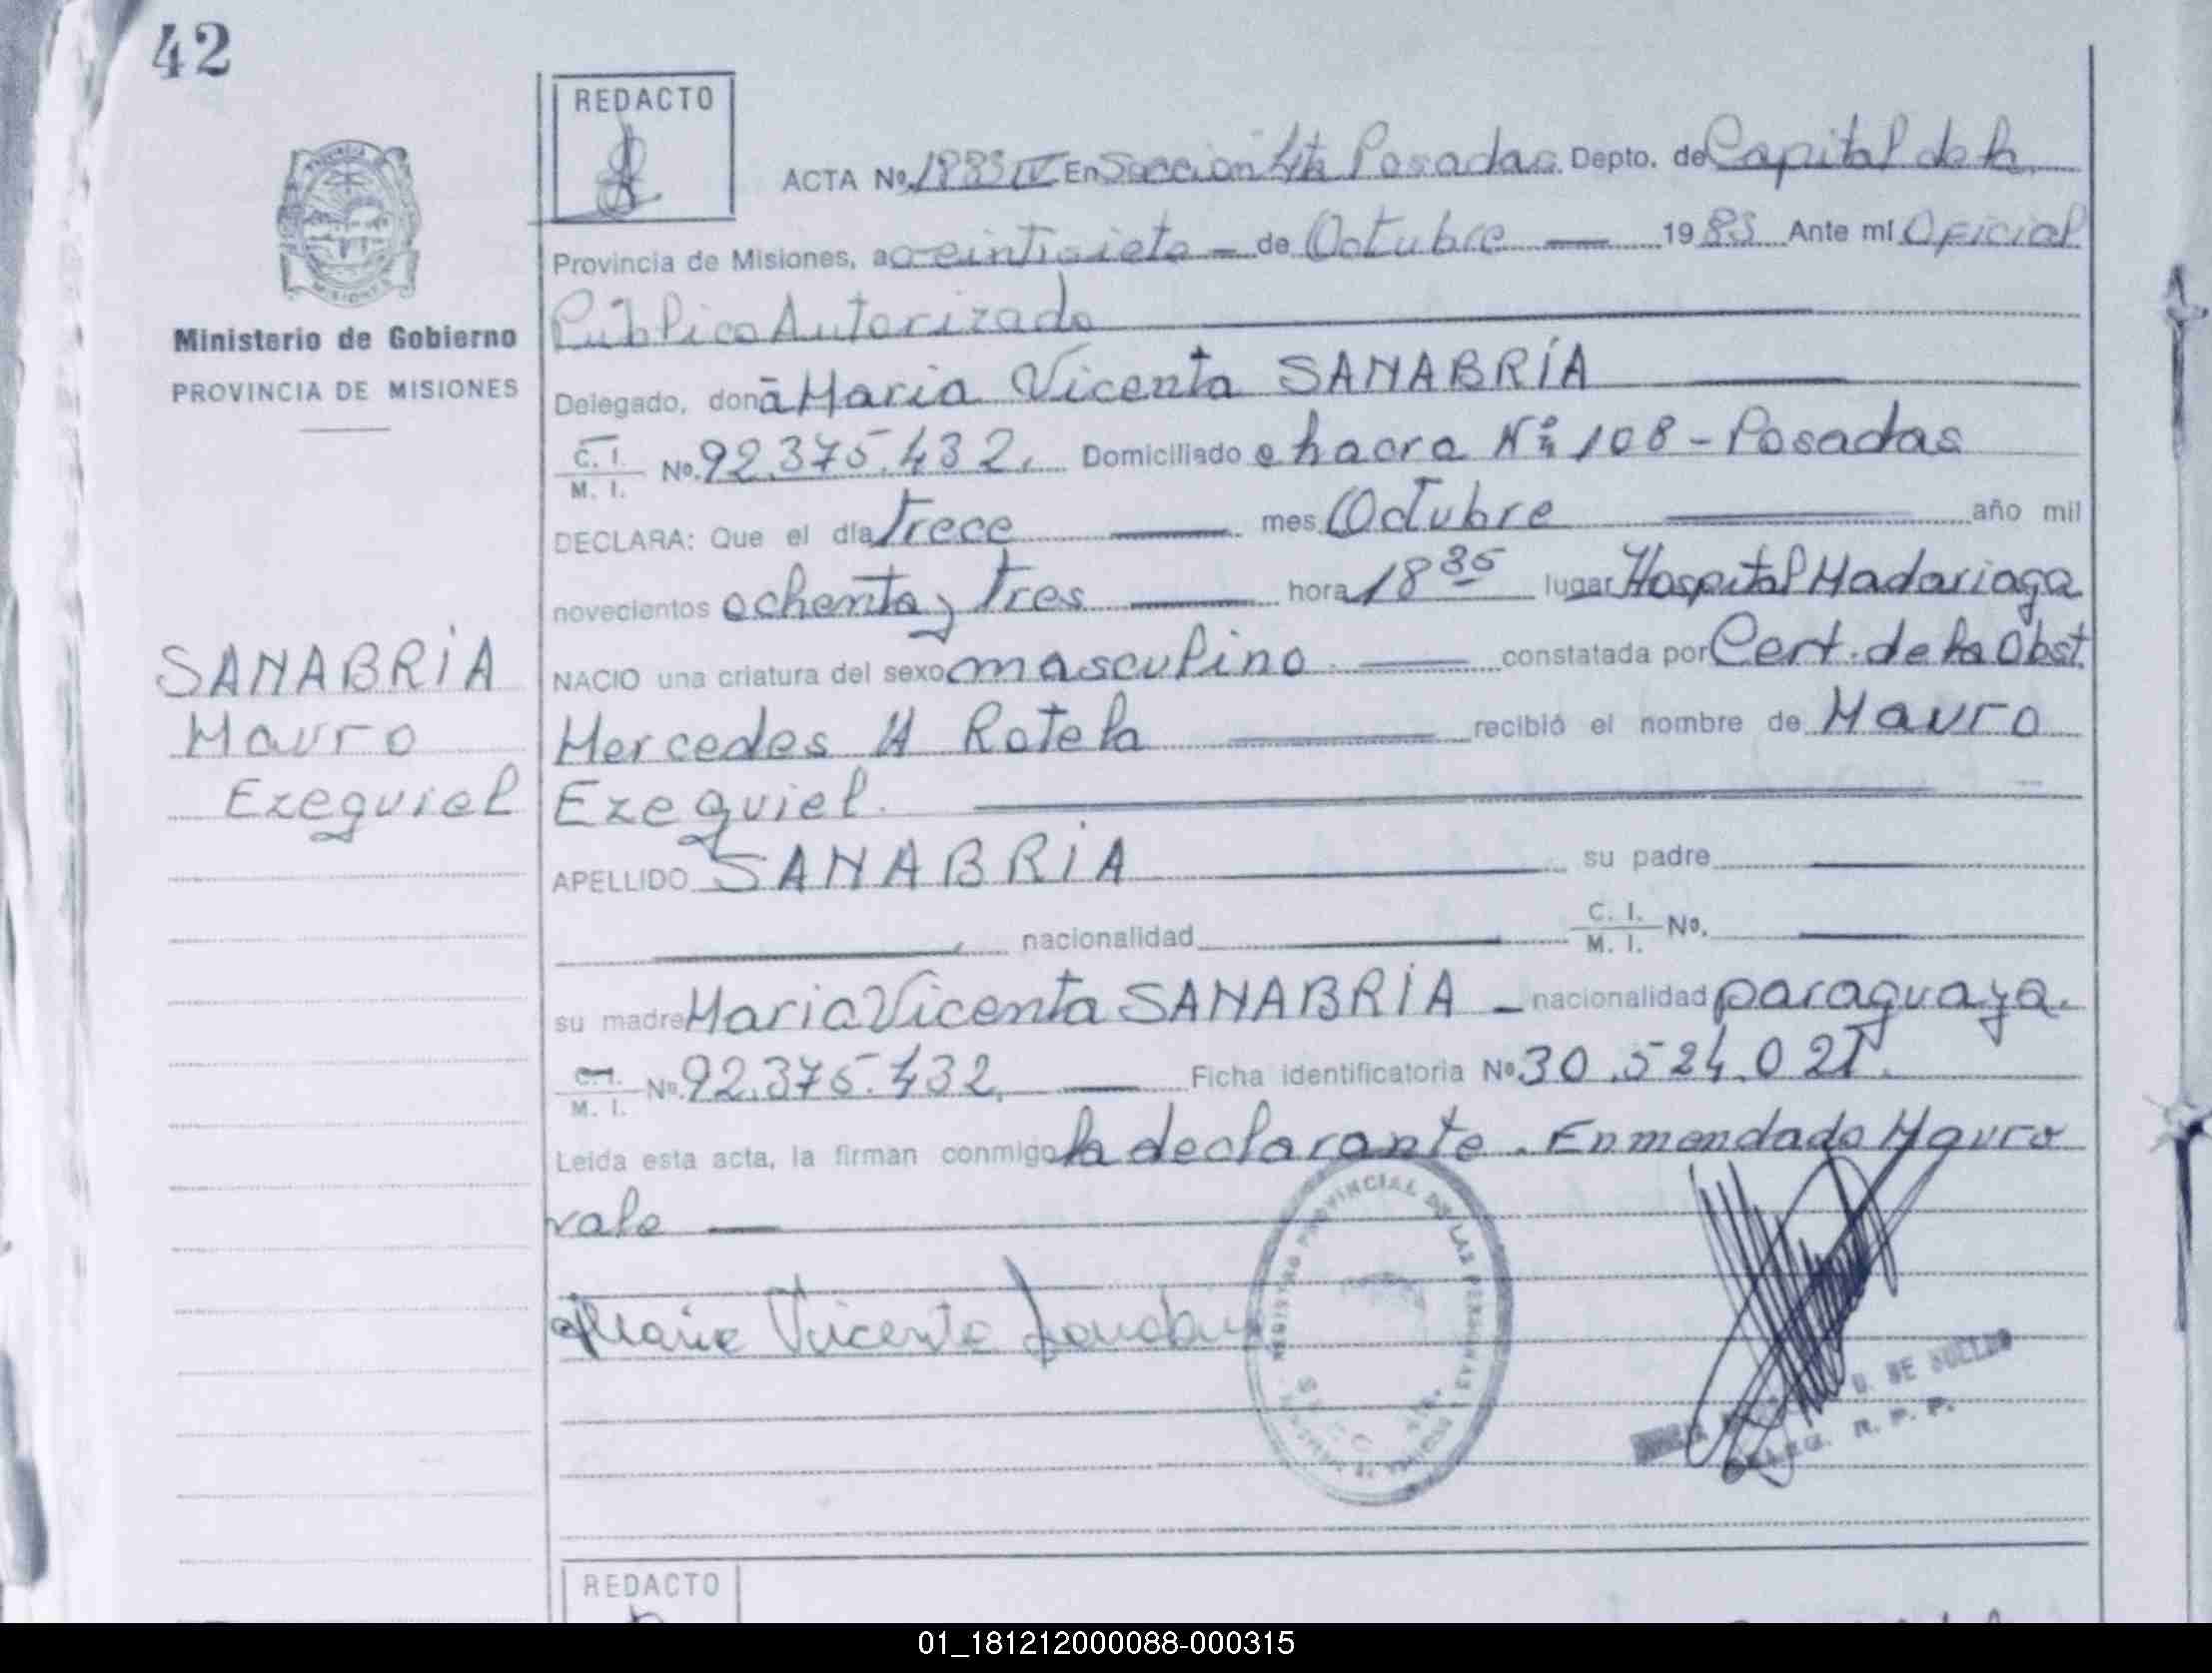 42
REDACTO
ACTA No. 1983 IV En Sección 4ta Posadas. Depto. de Capital de la
Provincia de Misiones, a veintisiete - de Octubre 1983 Ante mi Oficial
Público Autorizado
Ministerio de Gobierno
PROVINCIA DE MISIONES
Delegado, doña Maria Vicenta SANABRÍA
C. I. M. I. No. 92.375.432. Domiciliado chacra Nº 108 - Posadas
DECLARA: Que el día Trece mes Octubre año mil
novecientos ochenta y tres hora 18 35 lugar Hospital Madariaga
NACIO una criatura del sexo masculino. constatada por Cert. de la Obst.
Mercedes Rotela recibió el nombre de Mauro
Ezequiel.
SANABRIA
Mauro
Ezequiel
APELLIDO SANABRIA su padre
nacionalidad C. I. M. I. No.
su madre Maria Vicenta SANABRIA - nacionalidad paraguaya.
C. I. M. I. No. 92.375.432. Ficha identificatoria No 30.524.021.
Leída esta acta, la firman conmigo la declarante. Enmendado Mauro
vale
Maria Vicenta
REGISTRO PROVINCIAL DE LAS PERSONAS
R. P. P.
REDACTO
01_181212000088-000315